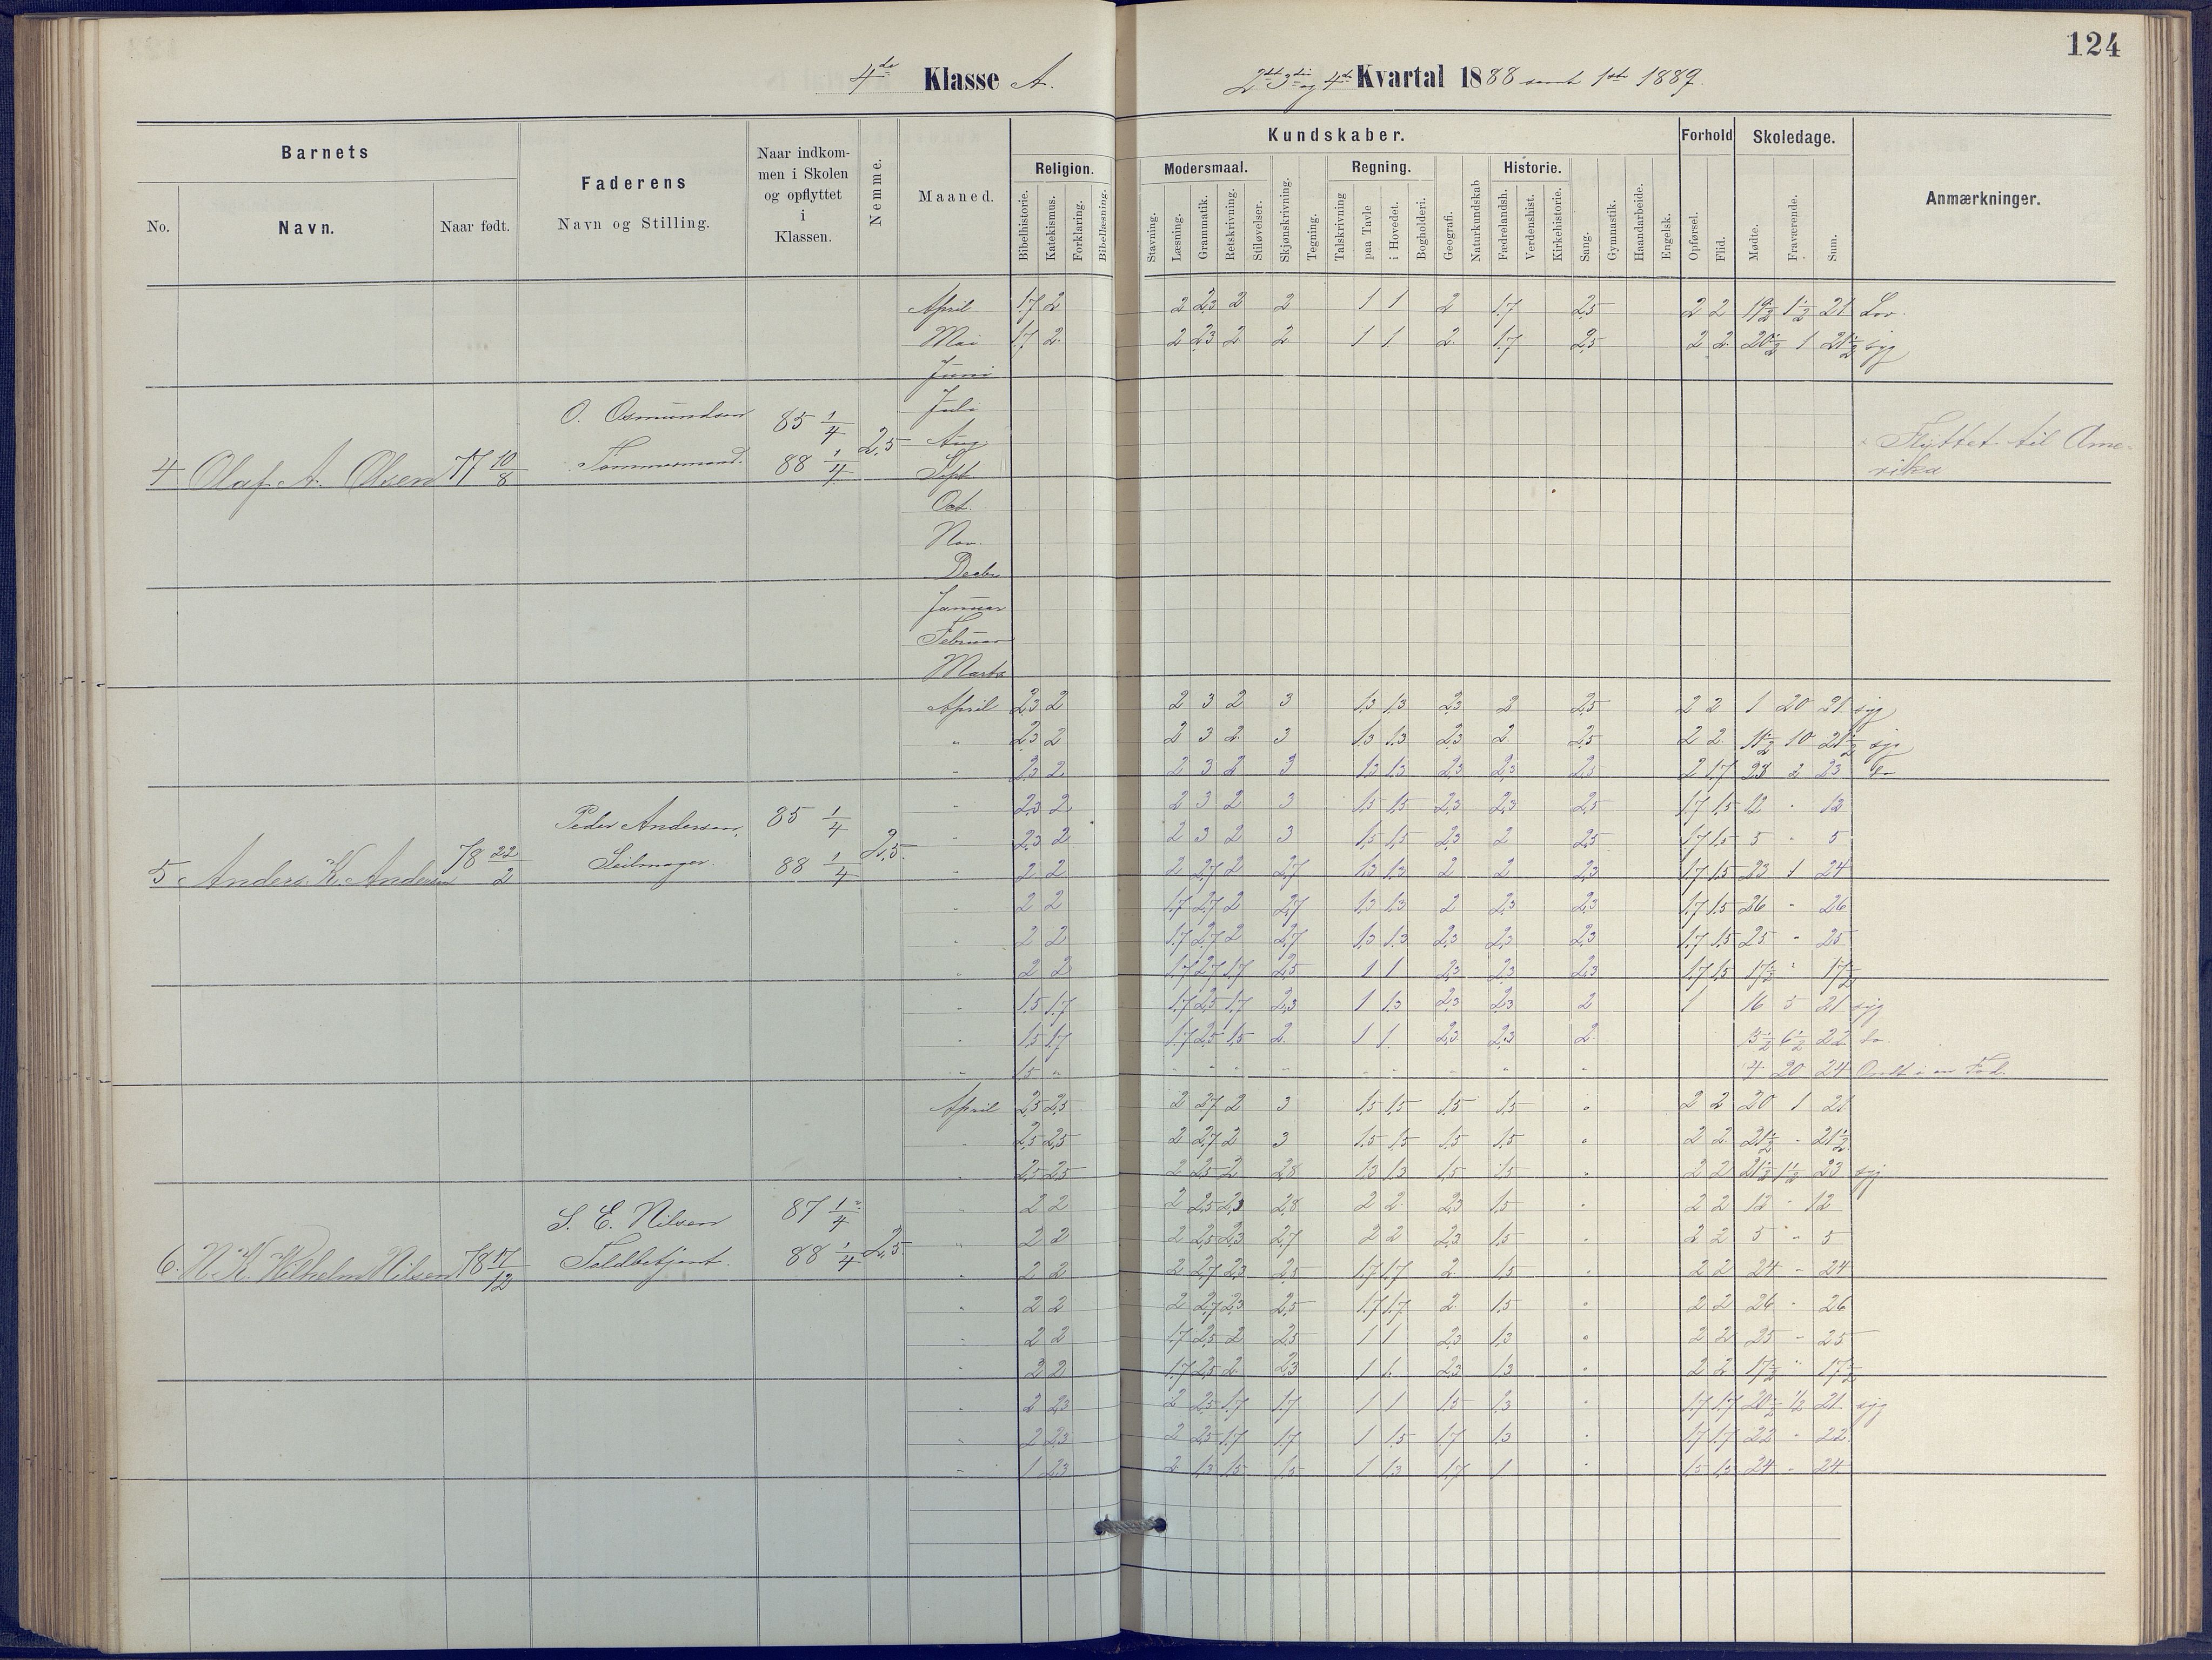 124
4de Klasse A.
2det 3die og 4de Kvartal 1888 samt 1ste 1889.
Barnets
Faderens
Naar indkommen i Skolen og opflyttet i Klassen.
Nemme.
Maaned.
Religion.
Kundskaber.
Modersmaal.
Regning.
Historie.
Forhold
Skoledage.
Anmærkninger.
No.
Navn.
Naar født.
Navn og Stilling.
Bibelhistorie.
Katekismus.
Forklaring.
Bibellæsning.
Stavning.
Læsning.
Grammatik.
Retskrivning.
Stiløvelser.
Skjønskrivning.
Tegning.
Talskrivning
paa Tavle
i Hovedet.
Bogholderi.
Geografi.
Naturkundskab
Fædrelandsh.
Verdenshist.
Kirkehistorie.
Sang.
Gymnastik.
Haandarbeide.
Engelsk.
Opførsel.
Flid.
Mødte.
Fraværende.
Sum.
April 1,7 2 2 2,3 2 2 1 1 2 1,7 2,5 2 2 19½ 1½ 21 Lov.
Mai 1,7 2 2 2,3 2 2 1 1 2 1,7 2,5 2 2 20½ 1 21½ syg
Juni
Juli
Aug
Sept
Oct.
Nov.
Decbr
Januar
Februar
Marts
4 Olaf A. Olsen 77 10/8
O. Osmundsen
Tømmermand.
85 1/4
88 1/4
2,5
Flyttet til Amerika
April 2,3 2 2 3 2 3 1,3 1,3 2,3 2 2,5 2 2 1 20 21 syg
" 2,3 2 2 3 2 3 1,3 1,3 2,3 2 2,5 2 2 11½ 10 21½ syg
" 2,3 2 2 3 2 3 1,3 1,3 2,3 2,3 2,5 2 1,7 23
" 2,3 2 2 3 2 3 1,5 1,5 2,3 2,3 2,5 1,7 1,5 12 " 12
" 2,3 2 2 3 2 3 1,5 1,5 2,3 2 2,5 1,7 1,5 5 " 5
" 2 2 2 2,7 2 2,7 1,3 1,3 2 2 2,3 1,7 1,5 23 1 24
" 2 2 1,7 2,7 2 2,7 1,3 1,3 2 2,3 2,3 1,7 1,5 26 " 26
" 2 2 1,7 2,7 2 2,7 1,3 1,3 2,3 2,3 2,3 1,7 1,5 25 " 25
" 2 2 1,7 2,7 1,7 2,5 1 1 2,3 2,3 2,3 1,7 1,5 17½ " 17½
" 1,5 1,7 1,7 2,5 1,7 2,3 1 1,3 2,3 2,3 2 1 16 5 21 syg
" 1,5 1,7 1,7 2,5 1,5 2 1 1 2,3 2,3 2 15½ 6½ 22 do.
" 1,5 " 4 20 24 Ondt i en Fod.
5 Anders K. Andersen 78 22/2
Peder Andersen,
Seilmager.
85 1/4
88 1/4
2,5.
April 2,5 2,5 2 2,7 2 3 1,5 1,5 1,5 1,5 " 2 2 20 1 21
" 2,5 2,5 2 2,7 2 3 1,5 1,5 1,5 1,5 " 2 2 21½ " 21½
" 2,5 2,5 2 2,5 2 2,8 1,3 1,3 1,5 1,5 " 2 2 21½ 1½ 23 syg
" 2 2 2 2,5 2,3 2,8 2 2 2,3 1,5 " 2 2 12 " 12
" 2 2 2 2,5 2,3 2,7 2 2 2,3 1,5 " 2 2 5 " 5
" 2 2 2 2,7 2,3 2,5 1,7 1,7 2 1,5 " 2 2 24 " 24
" 2 2 2 2,7 2,3 2,5 1,7 1,7 2 1,5 " 2 2 26 " 26
" 2 2 1,7 2,5 2 2,5 1 1 2,3 1,3 " 2 2 25 " 25
" 2 2 1,7 2,5 2 2,3 1 1 2,3 1,3 " 2 2 17½ " 17½
" 2 2,3 2 2,5 1,7 1,7 1 1 1,5 1,3 " 1,7 1,7 20½ ½ 21 syg
" 2 2,3 2 2,5 1,7 1,7 1 1,5 1,7 1,3 " 1,7 1,7 22 " 22
" 1 2,3 2 1,3 1,5 1,5 1 1,3 1,7 1 " 1,5 1,5 24 " 24
6. N. K. Wilhelm Nilsen 78 17/12
S. E. Nilsen
Toldbetjent.
87 1/4
88 1/4
2,5.